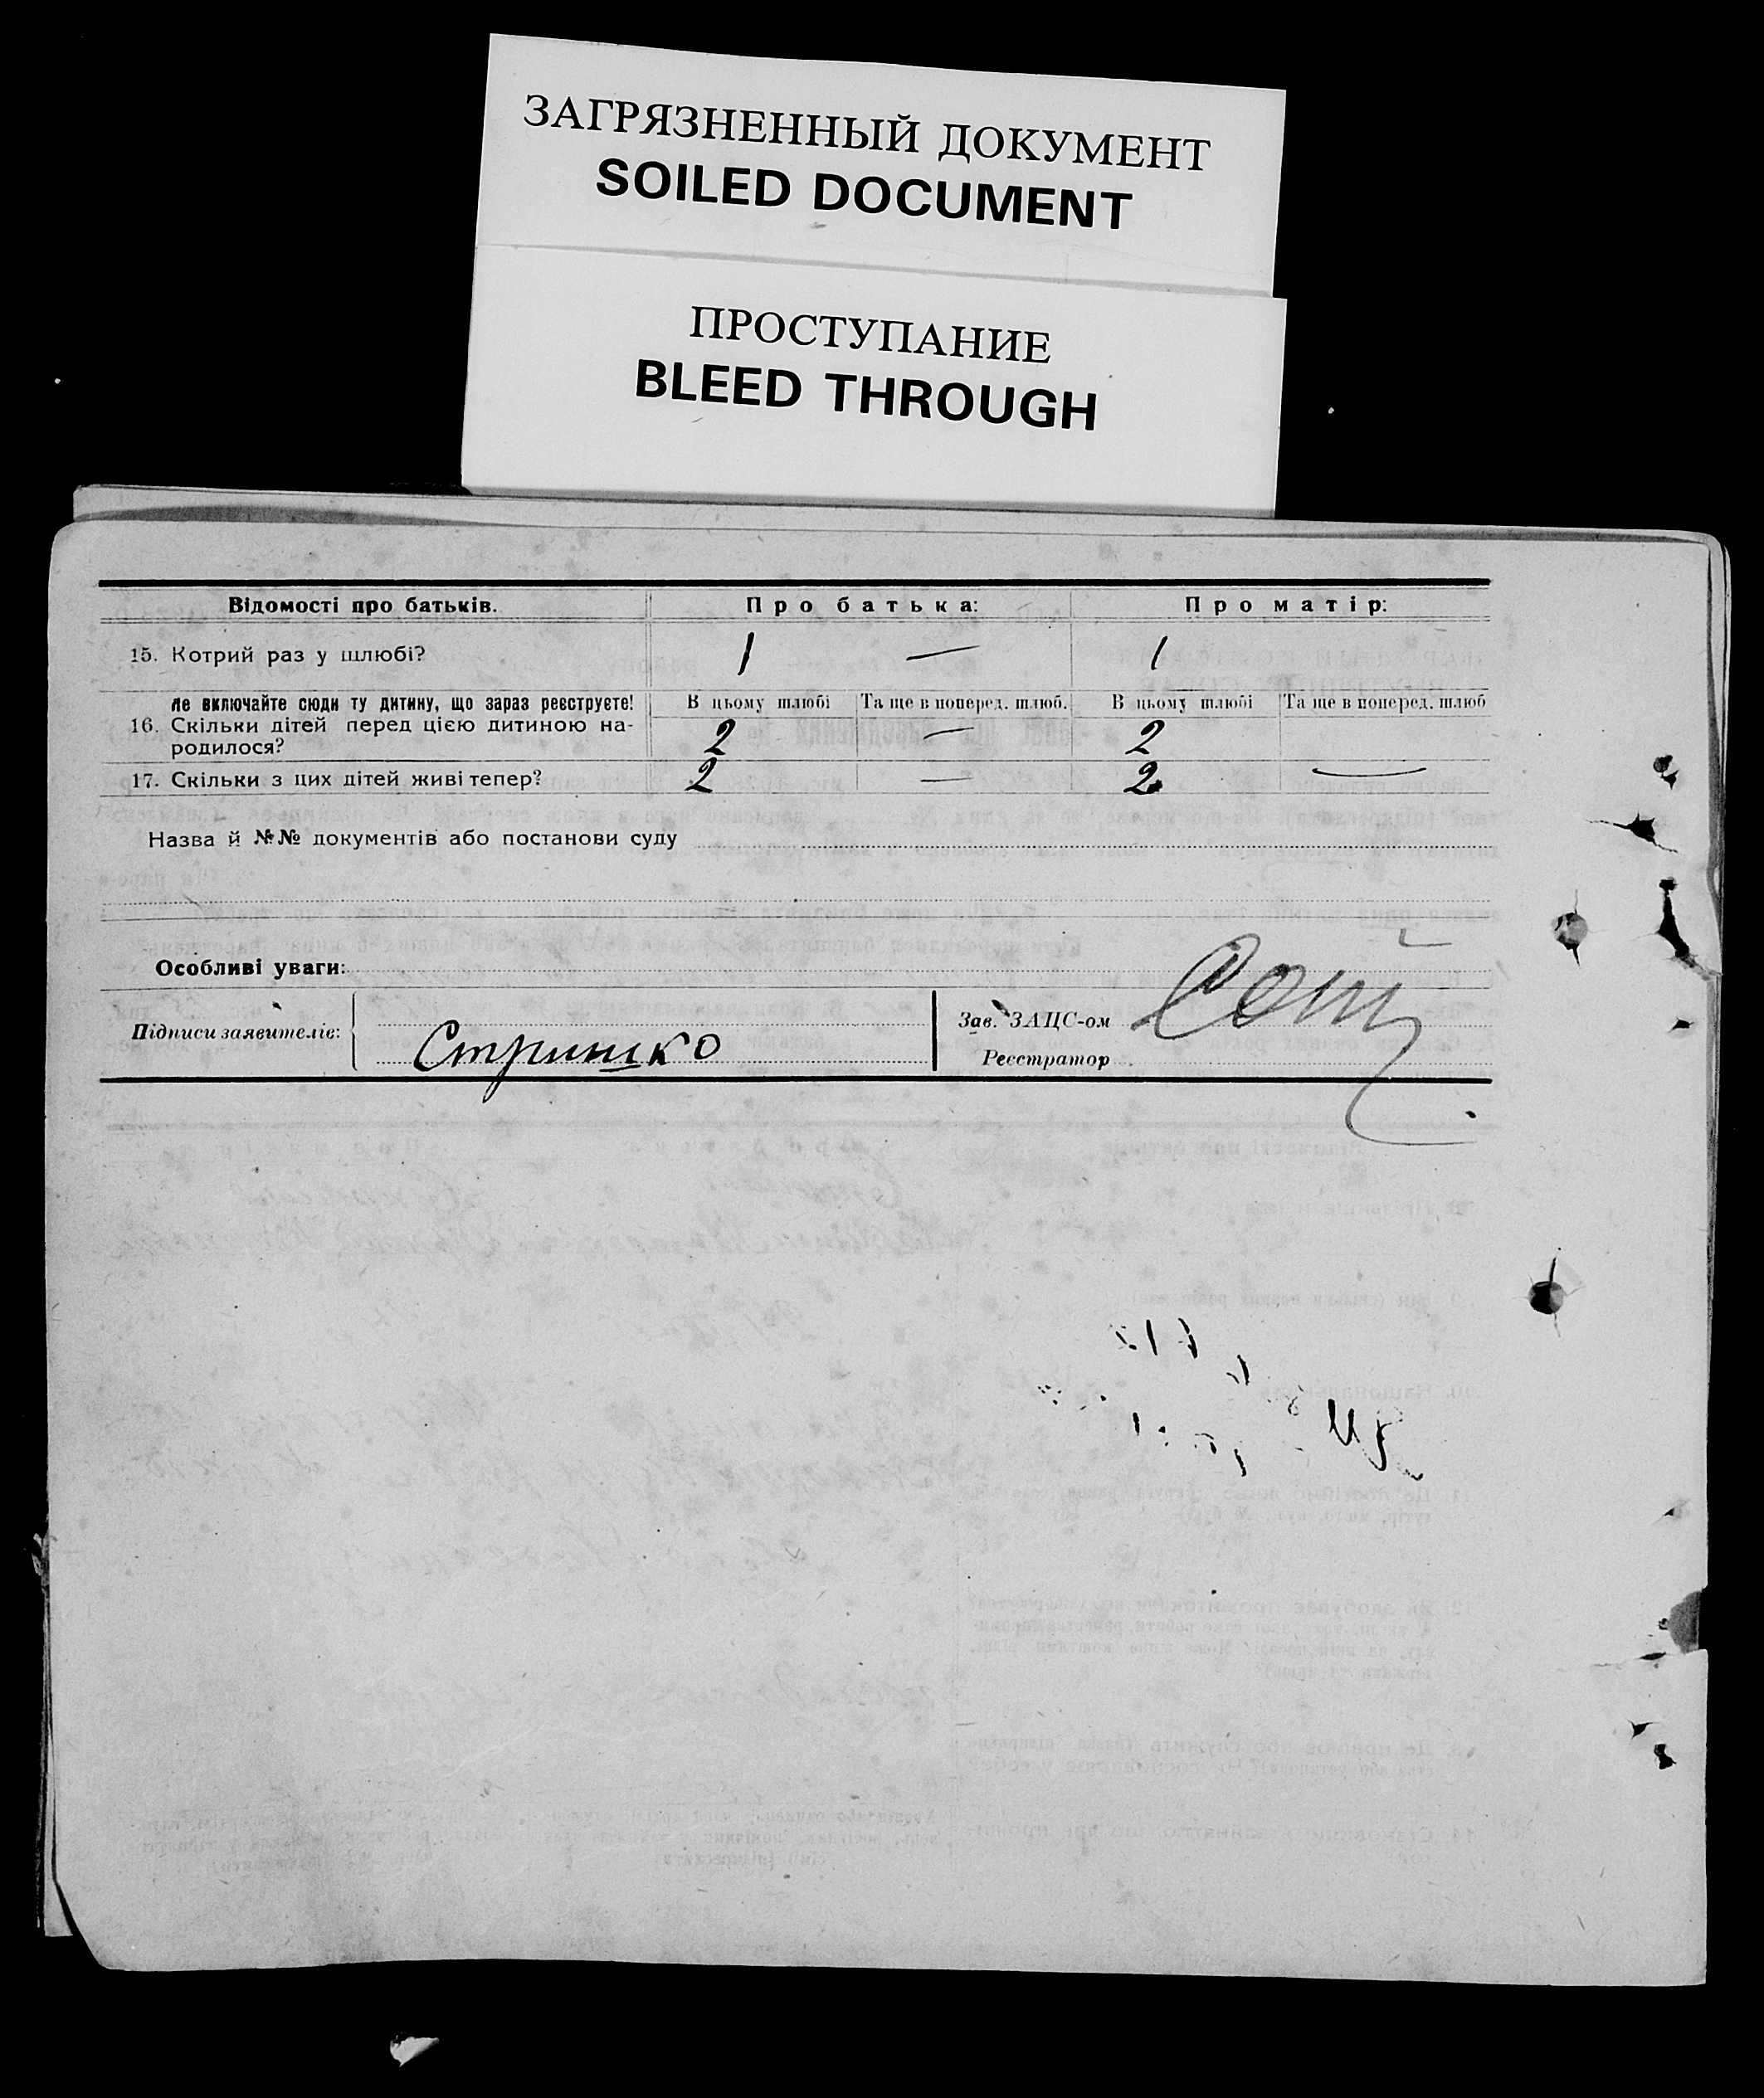 ЗАГРЯЗНЕННЫЙ ДОКУМЕНТ
SOILED DOCUMENT
ПРОСТУПАНИЕ
BLEED THROUGH
Відомості про батьків. Про батька: Про матір:
15. Котрий раз у шлюбі? 1 — 1
Не включайте сюди ту дитину, що зараз реєструєте! В цьому шлюбі Та ще в поперед. шлюб. В цьому шлюбі Та ще в поперед. шлюб
16. Скільки дітей перед цією дитиною на-
родилося? 2 — 2
17. Скільки з цих дітей живі тепер? 2 — 2 —
Назва й №№ документів або постанови суду
Особливі уваги:
Підписи заявителів: Стришко
Зав. ЗАЦС-ом
Реєстратор